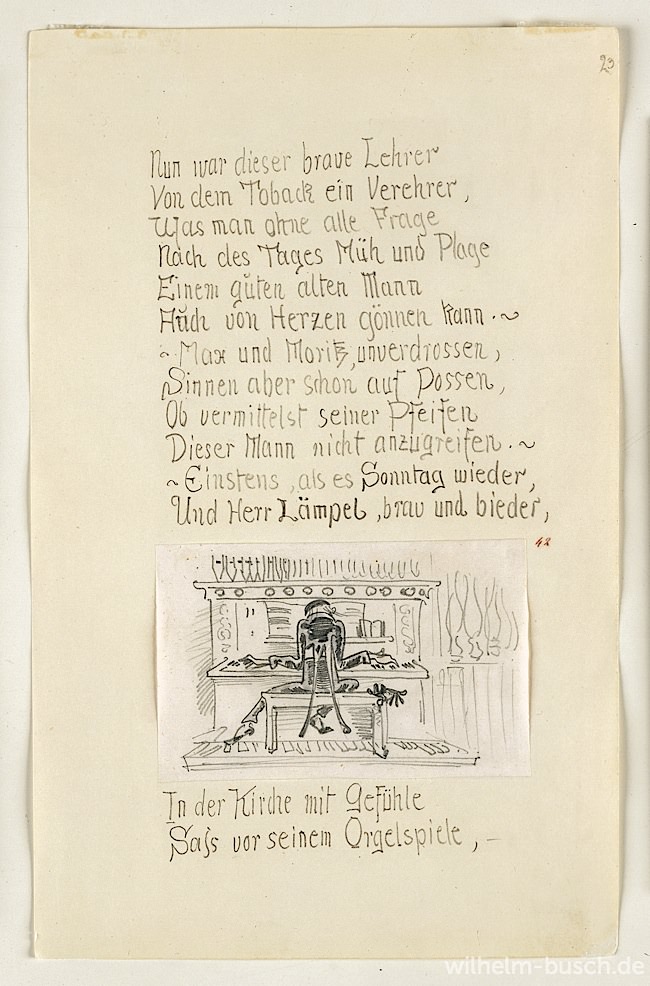 23
Nun war dieser brave Lehrer
Von dem Toback ein Verehrer,
Was man ohne alle Frage
Nach des Tages Müh und Plage
Einem guten alten Mann
Auch von Herzen gönnen kann. ~
~ Max und Moritz, unverdrossen,
Sinnen aber schon auf Possen,
Ob vermittelst seiner Pfeifen
Dieser Mann nicht anzugreifen. ~
~ Einstens, als es Sonntag wieder,
Und Herr Lämpel, brav und bieder,
42
In der Kirche mit Gefühle
Saſs vor seinem Orgelspiele, –
wilhelm-busch.de